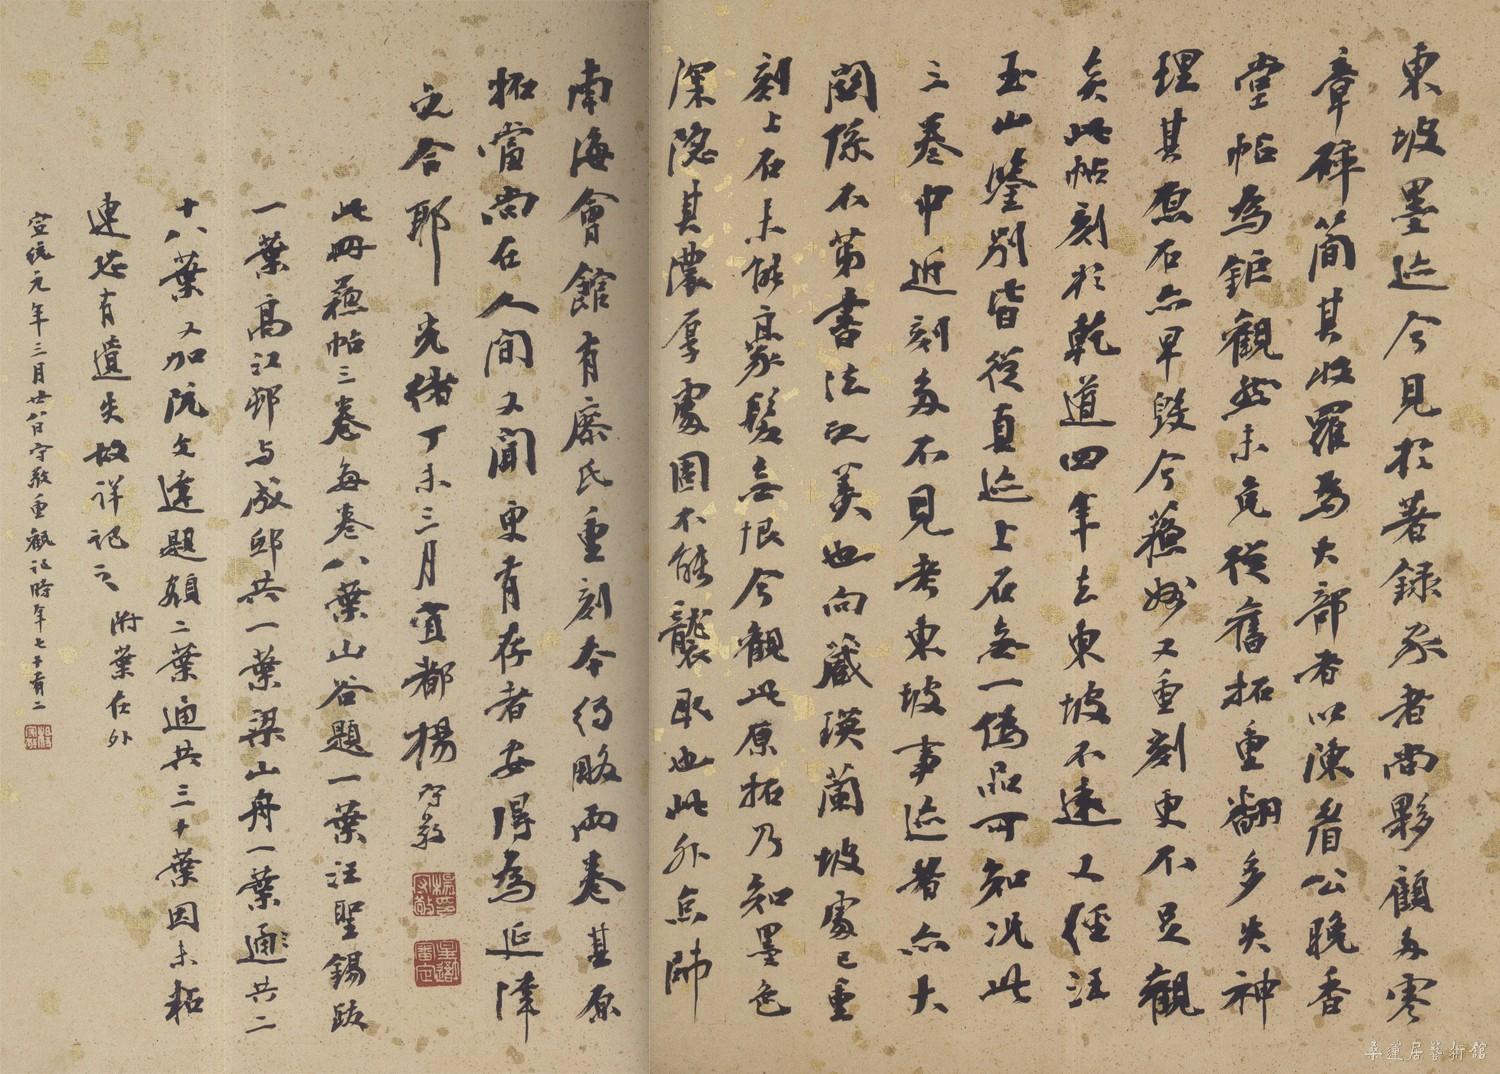 東坡墨迹今見於著録家者尚夥顧多寒
章碎簡其收羅為大部者以陳眉公晚香
堂帖為鉅觀然未免從舊拓重翻多失神
理其原石亦早毀今蘇州又重刻更不足觀
矣此帖刻於乾道四年去東坡不遠又經汪
玉山鑒別皆從真迹上石無一偽品可知況此
三卷中近刻多不見考東坡事迹者亦大
關係不第書法之美也向藏瑛蘭坡處已重
刻上石未能豪髮無恨今觀此原拓乃知墨色
深隱其濃厚處固不能襲取也此外忘歸
南海會館有廖氏重刻本約略兩卷其原
拓當尚在人間又聞更有存者安得為延津
之合耶 光緒丁未三月宜都楊守敬
此冊蘇帖三卷每卷八葉山谷題一葉汪聖錫跋
一葉高江邨与成邸共一葉梁山舟一葉通共二
十八葉又加阮文達題額二葉通共三十葉因未粘
連恐有遺失故詳記之 附葉在外
宣統元年三月廿八日守敬重觀記時年七十有一
桑蓮居藝術館